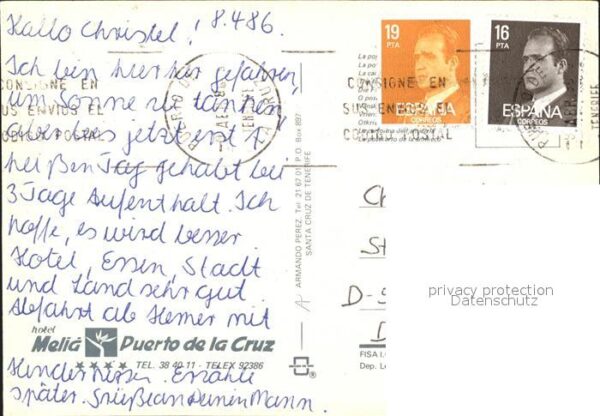 Hallo Christel! 8.4.86.
Ich bin hierher gefahren,
um Sonne zu tanken,
aber bis jetzt erst 1
heißen Tag gehabt bei
3 Tage Aufenthalt. Ich
hoffe, es wird besser
Hotel, Essen, Stadt
und Land sehr gut
Abfahrt ab Hemer mit
hotel
Meliá Puerto de la Cruz
★★★★ TEL. 38 40 11 - TELEX 92386
Hindernissen. Erzähle
später. Grüße an deinen Mann.
CONSIGNE EN
SUS ENVIOS EL
CODIGO POSTAL
PUERTO
TENERIFE
CONSIGNE EN
SUS ENVIOS EL
CODIGO POSTAL
19
PTA
ESPAÑA
CORREOS
16
PTA
ESPAÑA
CORREOS
TENERIFE
ARMANDO PEREZ, Tel. 21 67 01 P.O. Box 897
SANTA CRUZ DE TENERIFE
C
St
D-5
D
privacy protection
Datenschutz
FISA I.
Dep. Le